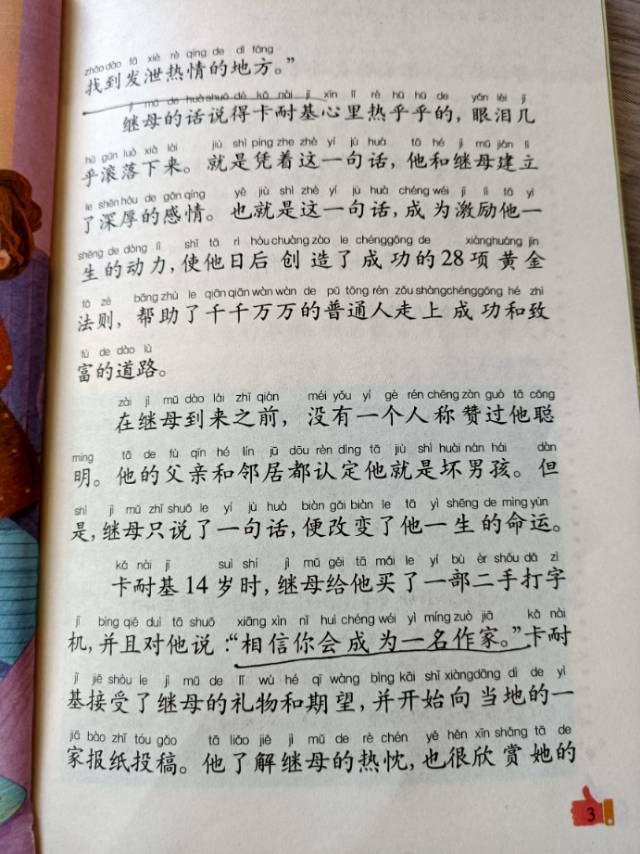 zhǎo dào fā xiè rè qíng de dì fāng
找到发泄热情的地方。”
jì mǔ de huà shuō dé kǎ nài jī xīn lǐ rè hū hū de yǎn lèi jǐ
继母的话说得卡耐基心里热乎乎的，眼泪几
hū gǔn luò xià lái jiù shì píng zhe zhè yí jù huà tā hé jì mǔ jiàn lì
乎滚落下来。就是凭着这一句话，他和继母建立
le shēn hòu de gǎn qíng yě jiù shì zhè yí jù huà chéng wéi jī lì tā yì
了深厚的感情。也就是这一句话，成为激励他一
shēng de dòng lì shǐ tā rì hòu chuàng zào le chéng gōng de xiàng huáng jīn
生的动力，使他日后创造了成功的28项黄金
fǎ zé bāng zhù le qiān qiān wàn wàn de pǔ tōng rén zǒu shàng chéng gōng hé zhì
法则，帮助了千千万万的普通人走上成功和致
fù de dào lù
富的道路。
zài jì mǔ dào lái zhī qián méi yǒu yí gè rén chēng zàn guò tā cōng
在继母到来之前，没有一个人称赞过他聪
míng tā de fù qīn hé lín jū dōu rèn dìng tā jiù shì huài nán hái dàn
明。他的父亲和邻居都认定他就是坏男孩。但
shì jì mǔ zhǐ shuō le yí jù huà biàn gǎi biàn le tā yì shēng de mìng yùn
是，继母只说了一句话，便改变了他一生的命运。
kǎ nài jī suì shí jì mǔ gěi tā mǎi le yí bù èr shǒu dǎ zì
卡耐基14岁时，继母给他买了一部二手打字
jī bìng qiě duì tā shuō xiāng xìn nǐ huì chéng wéi yì míng zuò jiā kǎ nài
机，并且对他说：“相信你会成为一名作家。”卡耐
jī jiē shòu le jì mǔ de lǐ wù hé qī wàng bìng kāi shǐ xiàng dāng dì de yì
基接受了继母的礼物和期望，并开始向当地的一
jiā bào zhǐ tóu gǎo tā liǎo jiě jì mǔ de rè chén yě hěn xīn shǎng tā de
家报纸投稿。他了解继母的热忱，也很欣赏她的
3